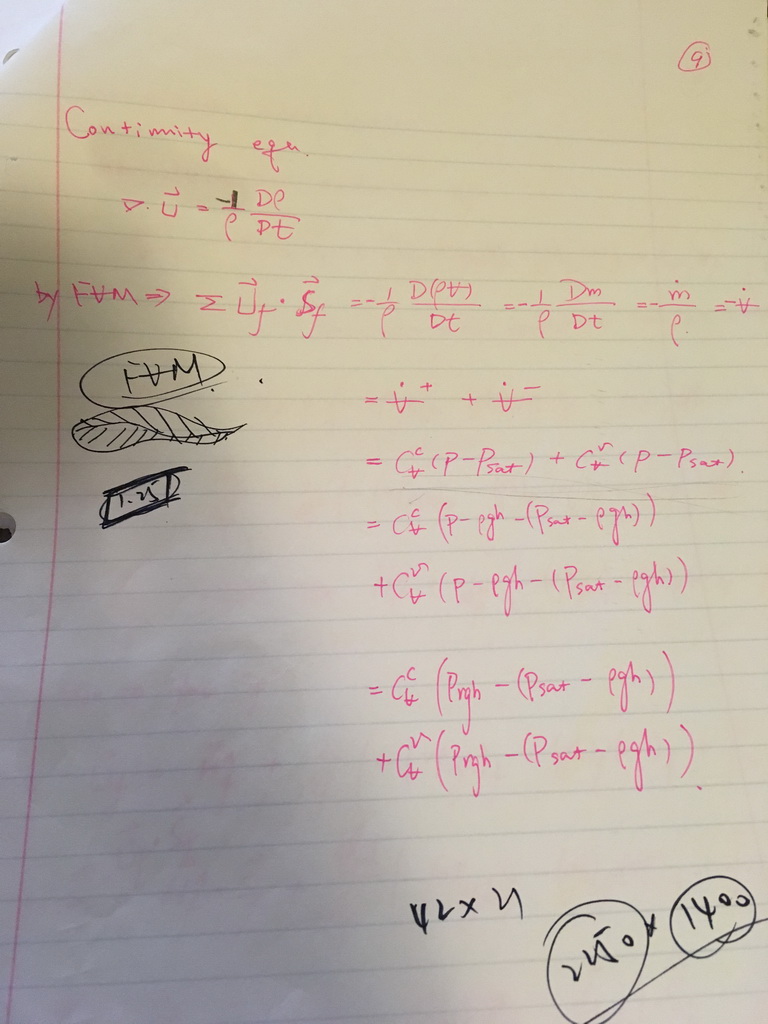 9
Continuity equ.
∇· U⃗ = -1/ρ Dρ/Dt
by FVM ⇒ Σ U⃗_f · S⃗_f = -1/ρ D(ρV)/Dt = -1/ρ Dm/Dt = -ṁ/ρ = -V̇
FVM
= V̇⁺ + V̇⁻
= C_V^c (P-Psat) + C_V^v (P-Psat).
1.25
= C_V^c (P-ρgh-(Psat-ρgh))
+ C_V^v (P-ρgh-(Psat-ρgh))
= C_V^c (Prgh-(Psat-ρgh))
+ C_V^v (Prgh-(Psat-ρgh)).
42×21
2250 × 1400